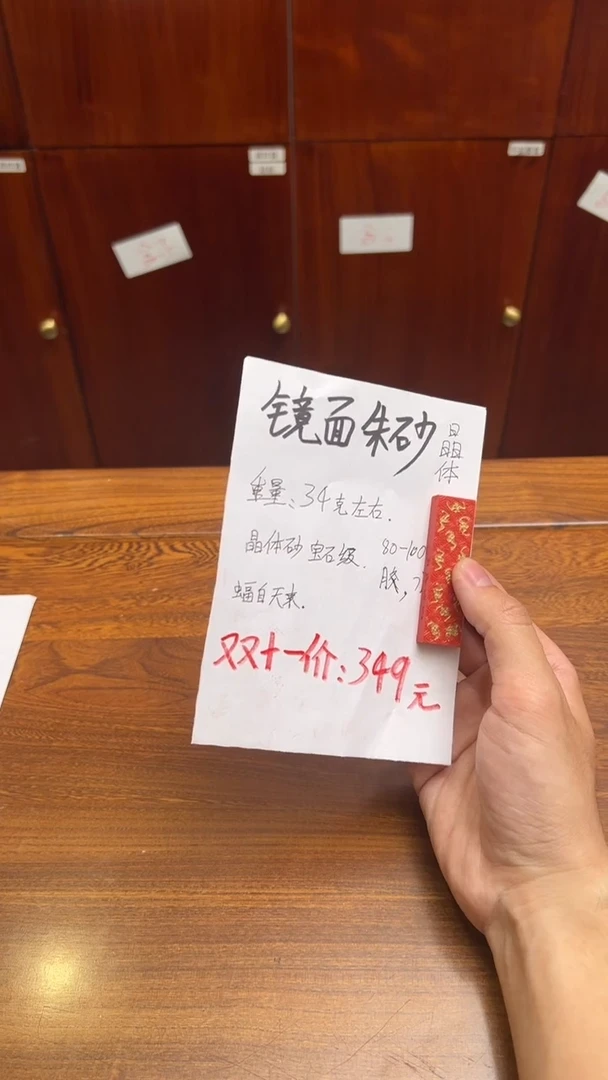 镜面朱砂
晶体
重量:34克左右.
晶体砂 宝石级. 80-100
胶,
蝠自天来.
双十一价:349元